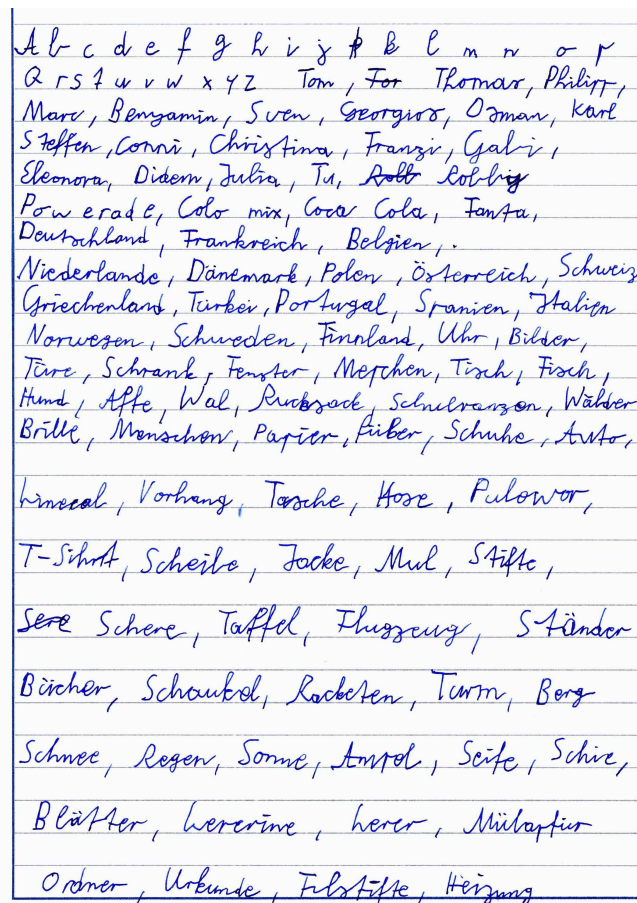 A b c d e f g h i j k l m n o p
Q r s t u v w x y z Tom, Thomas, Philipp,
Marc, Benyamin, Sven, Georgios, Osman, Karl
Steffen, Conni, Christina, Franzi, Gabi,
Eleonora, Didem, Julia, Tu, Robby
Powerade, Colo mix, Coca Cola, Fanta,
Deutschland, Frankreich, Belgien,.
Niederlande, Dänemark, Polen, Österreich, Schweiz
Griechenland, Türkei, Portugal, Spanien, Italien
Norwegen, Schweden, Finnland, Uhr, Bilder,
Türe, Schrank, Fenster, Merchen, Tisch, Fisch,
Hund, Affe, Wal, Rucksack, Schulranzen, Wälder
Brille, Menschen, Papier, Füber, Schuhe, Auto,
Lineeal, Vorhang, Tasche, Hose, Pulower,
T-Schrt, Scheibe, Jacke, Mul, Stifte,
Schere, Taffel, Flugzeug, Ständer
Bücher, Schaukel, Racketen, Turm, Berg
Schnee, Regen, Sonne, Ampel, Seife, Schire,
Blätter, Lererine, Lerer,
Ordner, Urkunde, Filstifte, Heizung